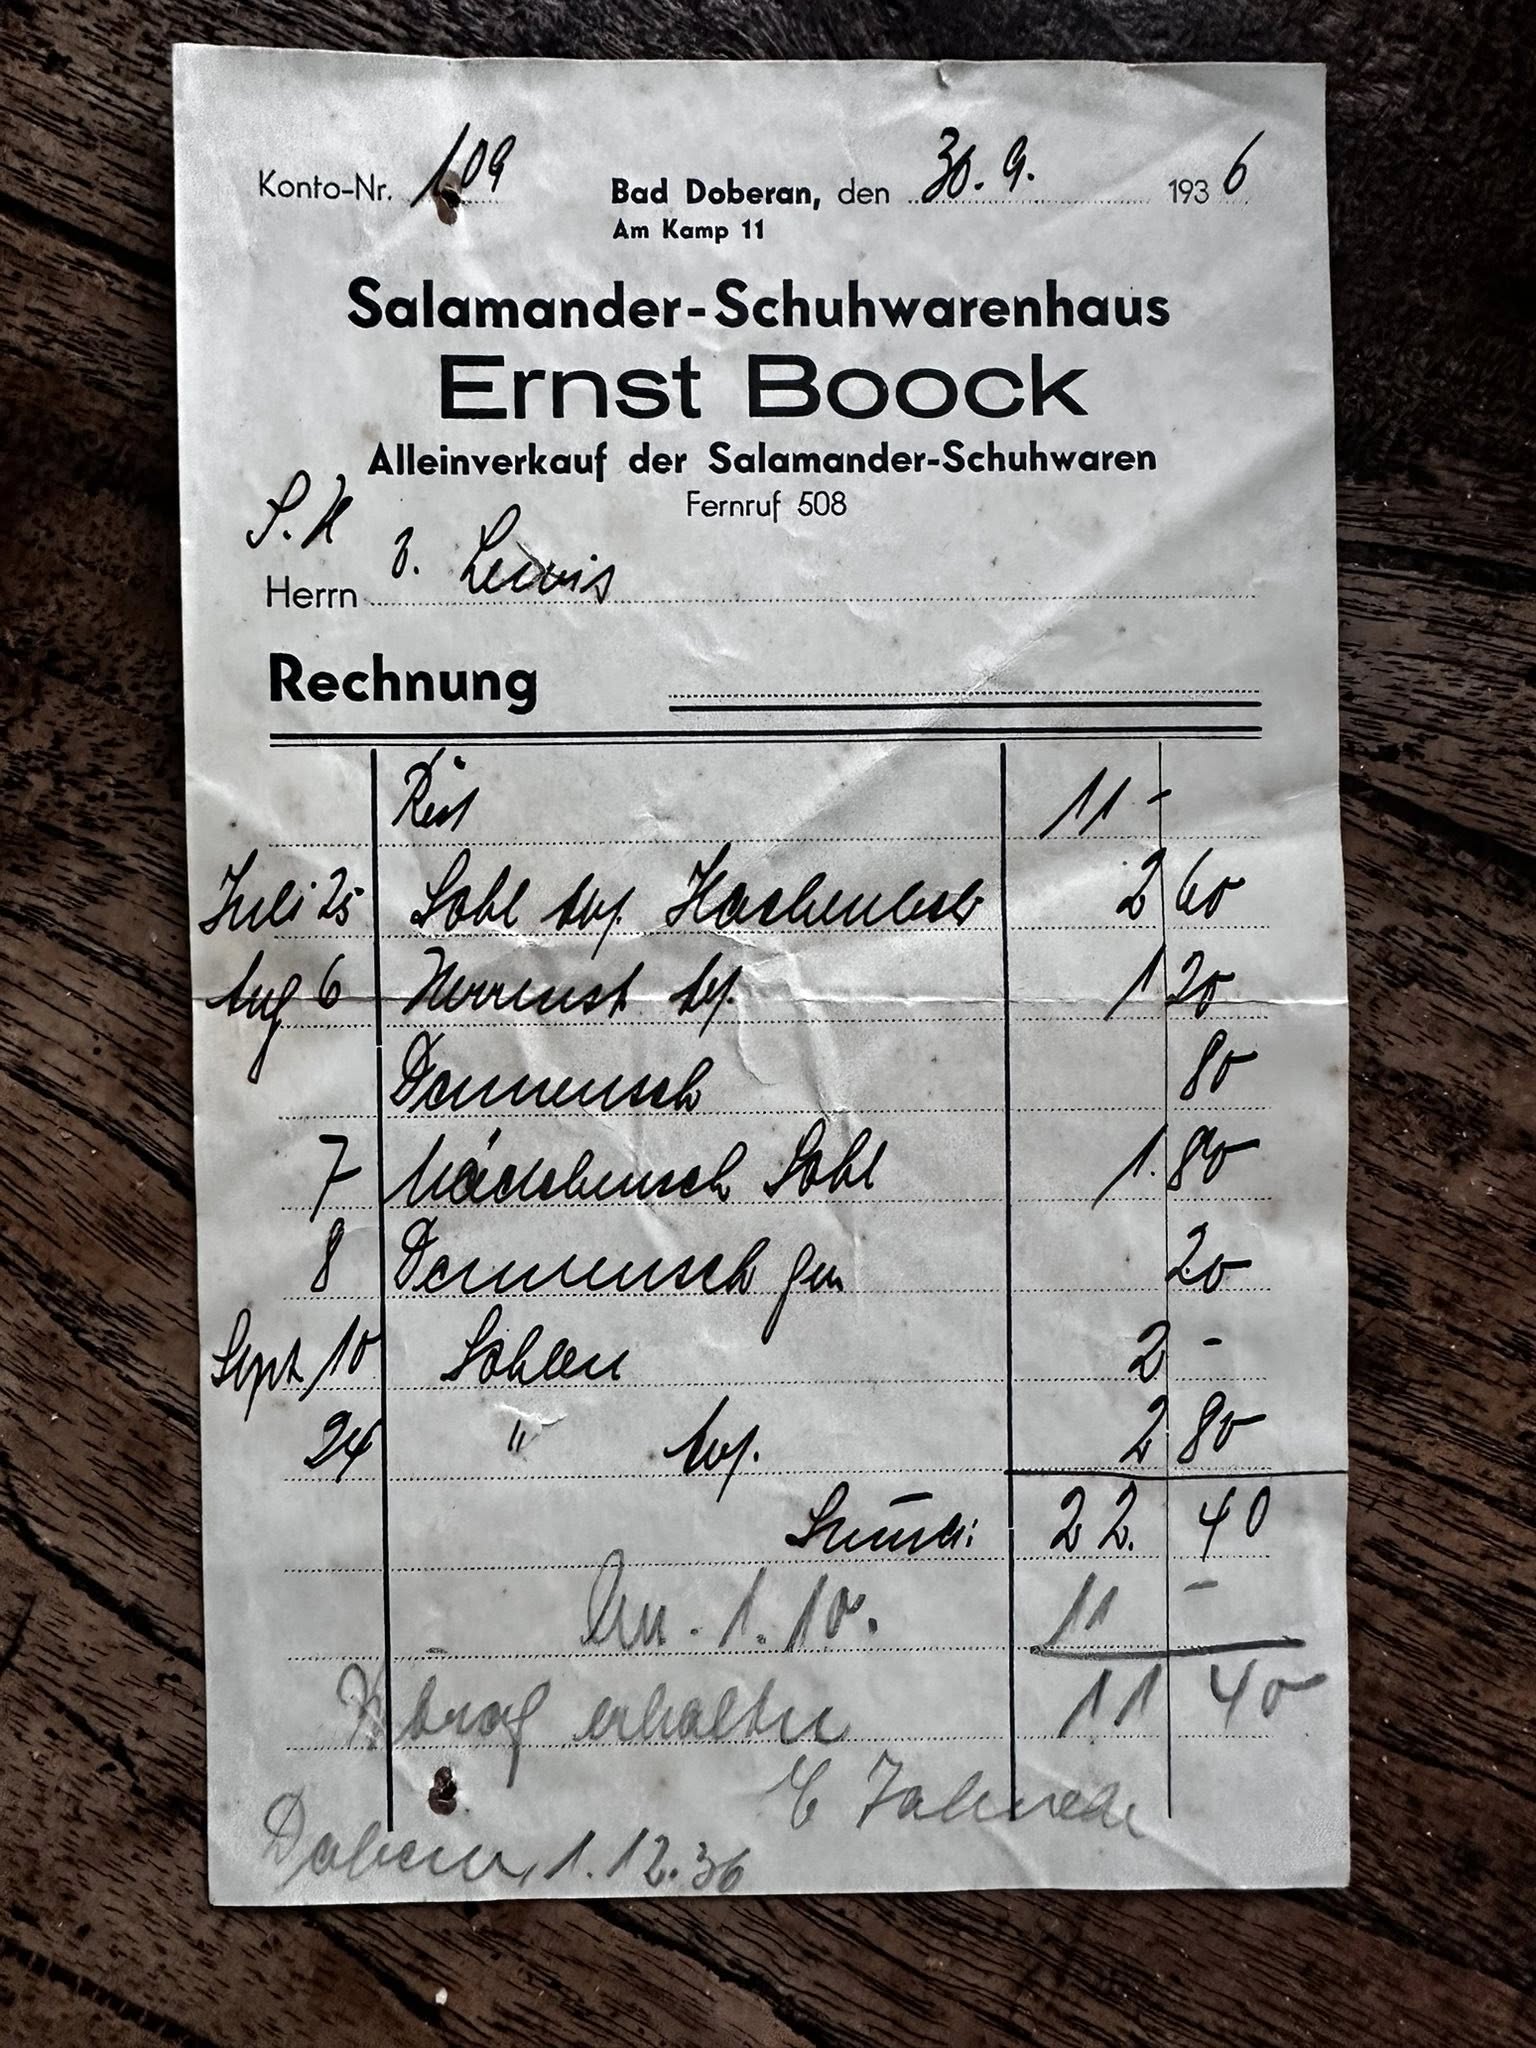 Konto-Nr. 109 Bad Doberan, den 30. 9. 1936
Am Kamp 11
Salamander-Schuhwarenhaus
Ernst Boock
Alleinverkauf der Salamander-Schuhwaren
Fernruf 508
S. H
Herrn v. Lewis
Rechnung
Rest 11 -
Juli 25 Sohl 2 60
Aug 6 Herrensch 1 20
Damensch 80
7 Mädchensch Sohl 1. 80
8 Damensch gen 20
Sept 10 Sohlen 2 -
24 " 2 80
Summa: 22. 40
1. 10. 11 -
Betrag erhalten 11 40
Doberan, 1. 12. 36